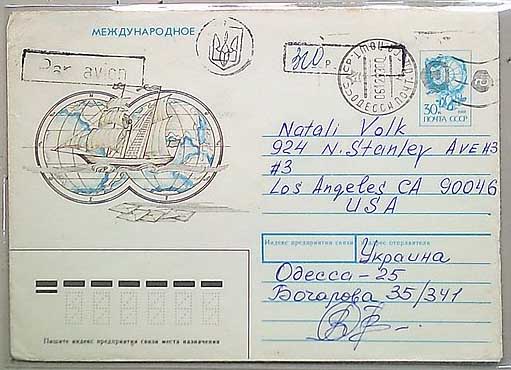 МЕЖДУНАРОДНОЕ
Par avion
30
ПОЧТА СССР
Natali Volk
924 N. Stanley Ave #3
#3
Los Angeles CA 90046
USA
Индекс предприятия связи и адрес отправителя
Украина
Одесса-25
Бочарова 35/341
Пишите индекс предприятия связи места назначения